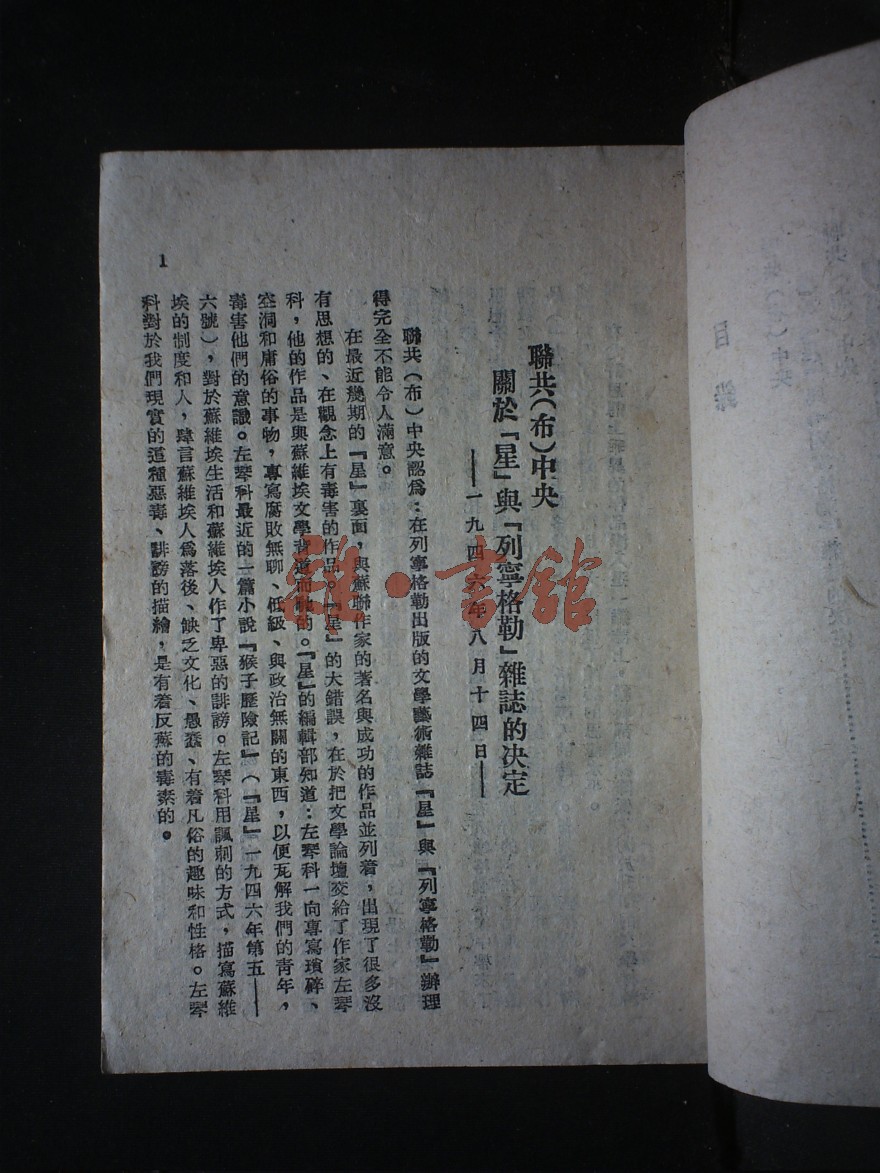 目錄
聯共(布)中央
關於『星』與『列寧格勒』雜誌的決定
——一九四六年八月十四日——
聯共(布)中央認爲：在列寧格勒出版的文學藝術雜誌『星』與『列寧格勒』辦理
得完全不能令人滿意。
在最近幾期的『星』裏面，與蘇聯作家的著名與成功的作品並列着，出現了很多沒
有思想的、在觀念上有毒害的作品。『星』的大錯誤，在於把文學論壇交給了作家左琴
科，他的作品是與蘇維埃文學背道而馳的。『星』的編輯部知道：左琴科一向專寫瑣碎、
空洞和庸俗的事物，專寫腐敗無聊、低級、與政治無關的東西，以便瓦解我們的青年，
毒害他們的意識。左琴科最近的一篇小說『猴子歷險記』(『星』一九四六年第五——
六號)，對於蘇維埃生活和蘇維埃人作了卑惡的誹謗。左琴科用諷刺的方式，描寫蘇維
埃的制度和人，肆言蘇維埃人爲落後、缺乏文化、愚蠢、有着凡俗的趣味和性格。左琴
科對於我們現實的這種惡毒、誹謗的描繪，是有着反蘇的毒素的。
1
雜·書館